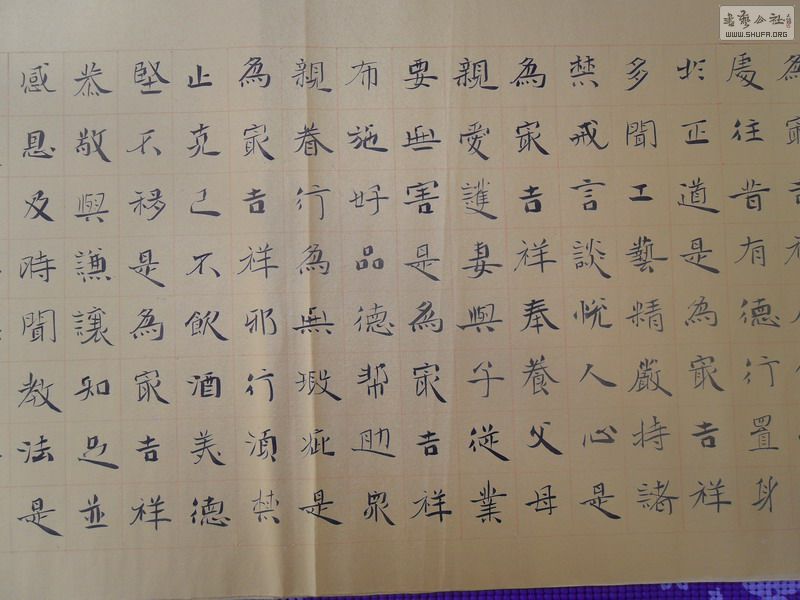 書藝公社
WWW.SHUFA.ORG
為㝡吉祥
處往昔有德行置身
於正道是為㝡吉祥
多聞工藝精嚴持諸
禁戒言談悅人心是
為㝡吉祥奉養父母
親愛護妻與子從業
要無害是為㝡吉祥
布施好品德帮助眾
親眷行為無瑕疵是
為㝡吉祥邪行須禁
止克己不飲酒美德
堅不移是為㝡吉祥
恭敬與謙讓知足並
感恩及時聞教法是